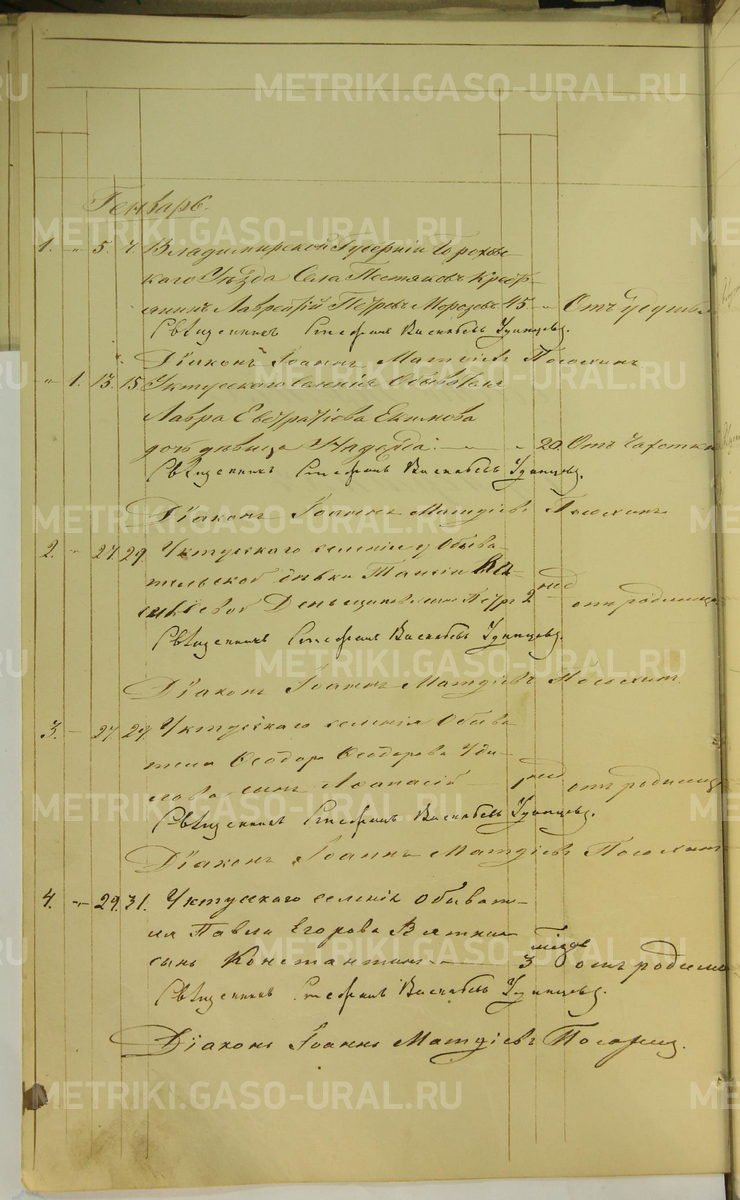 METRIKI.GASO-URAL.RU
Генварь.
1. " 5. 7. Владимирской Губерніи Горохов-
скаго Уѣзда Села Пестяковъ Кресть-
янинъ Лаврентій Петровъ Морозовъ 45 - Отъ удушья
Священникъ Стефанъ Васильевъ Удинцевъ.
Діаконъ Іоаннъ Матѳіевъ
" 1. 13. 15. Уктусскаго селенія Обывателя
Лавра Евстратіева
дочь дѣвица Надежда. " 20. Отъ Чахотки
Священникъ Стефанъ Васильевъ Удинцевъ.
Діаконъ Іоаннъ Матѳіевъ
2. " 27. 29. Уктусскаго селенія у Обыва-
тельской дѣвки Ва-
сильевой сынъ Петръ 2 нед отъ родимца
Священникъ Стефанъ Васильевъ Удинцевъ.
Діаконъ Іоаннъ Матѳіевъ
3. - 27. 29. Уктусскаго селенія Обыва
теля Ѳеодора Ѳеодорова
сынъ Аѳанасій - 1 нед отъ родимца
Священникъ Стефанъ Васильевъ Удинцевъ.
Діаконъ Іоаннъ Матѳіевъ
4. " 29. 31. Уктусскаго селенія Обывате-
ля Павла Егорова Вяткина
сынъ Константинъ 3 мѣсяц отъ родимца
Священникъ Стефанъ Васильевъ Удинцевъ.
Діаконъ Іоаннъ Матѳіевъ